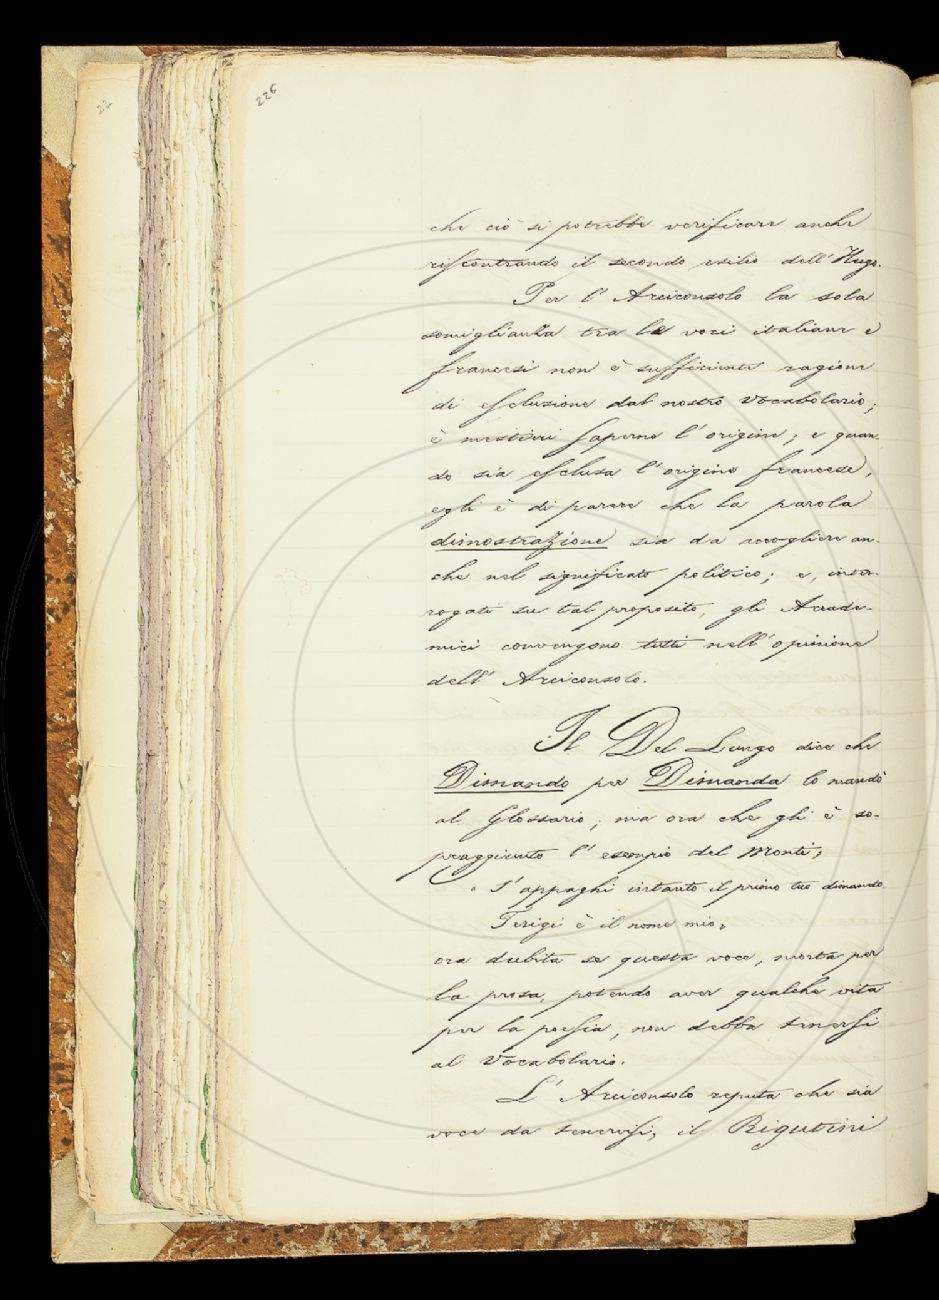 22
226
che ciò si potrebbe verificare anche
riscontrando il secondo esilio dell'Hugo.
Per l'Arciconsolo la sola
somiglianza tra le voci italiane e
francesi non è sufficiente ragione
di esclusione dal nostro Vocabolario;
è mestieri saperne l'origine; e quan-
do sia esclusa l'origine francese,
egli è di parere che la parola
dimostrazione sia da accogliere an-
che nel significato politico; e, inter-
rogati su tal proposito, gli Accade-
mici convengono tutti nell'opinione
dell'Arciconsolo.
Il Del Lungo dice che
Dimando per Dimanda lo mandò
al Glossario; ma ora che gli è so-
praggiunto l'esempio del Monti;
"S'appaghi intanto il primo tuo dimando
Terigi è il nome mio,
ora dubita se questa voce, morta per
la prosa, potendo aver qualche vita
per la poesia, non debba tenersi
al Vocabolario.
L'Arciconsolo reputa che sia
voce da tenersi, il Rigutini